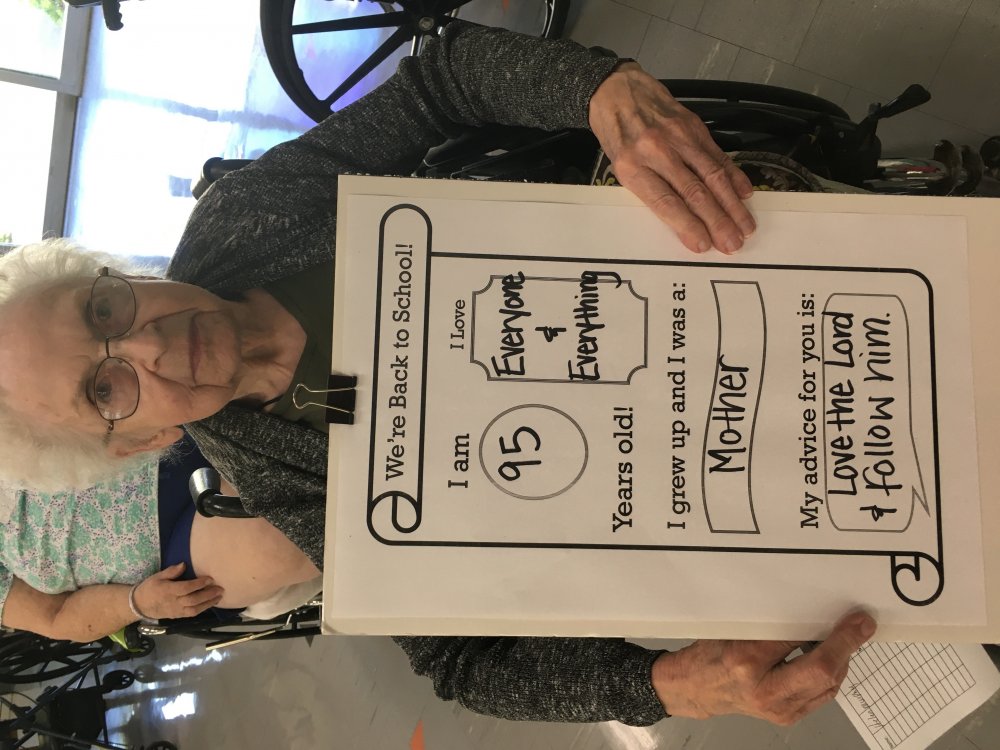 We're Back to School!
I am
95
Years old!
I Love
Everyone
&
Everything
I grew up and I was a:
Mother
My advice for you is:
Love the Lord
& follow him.